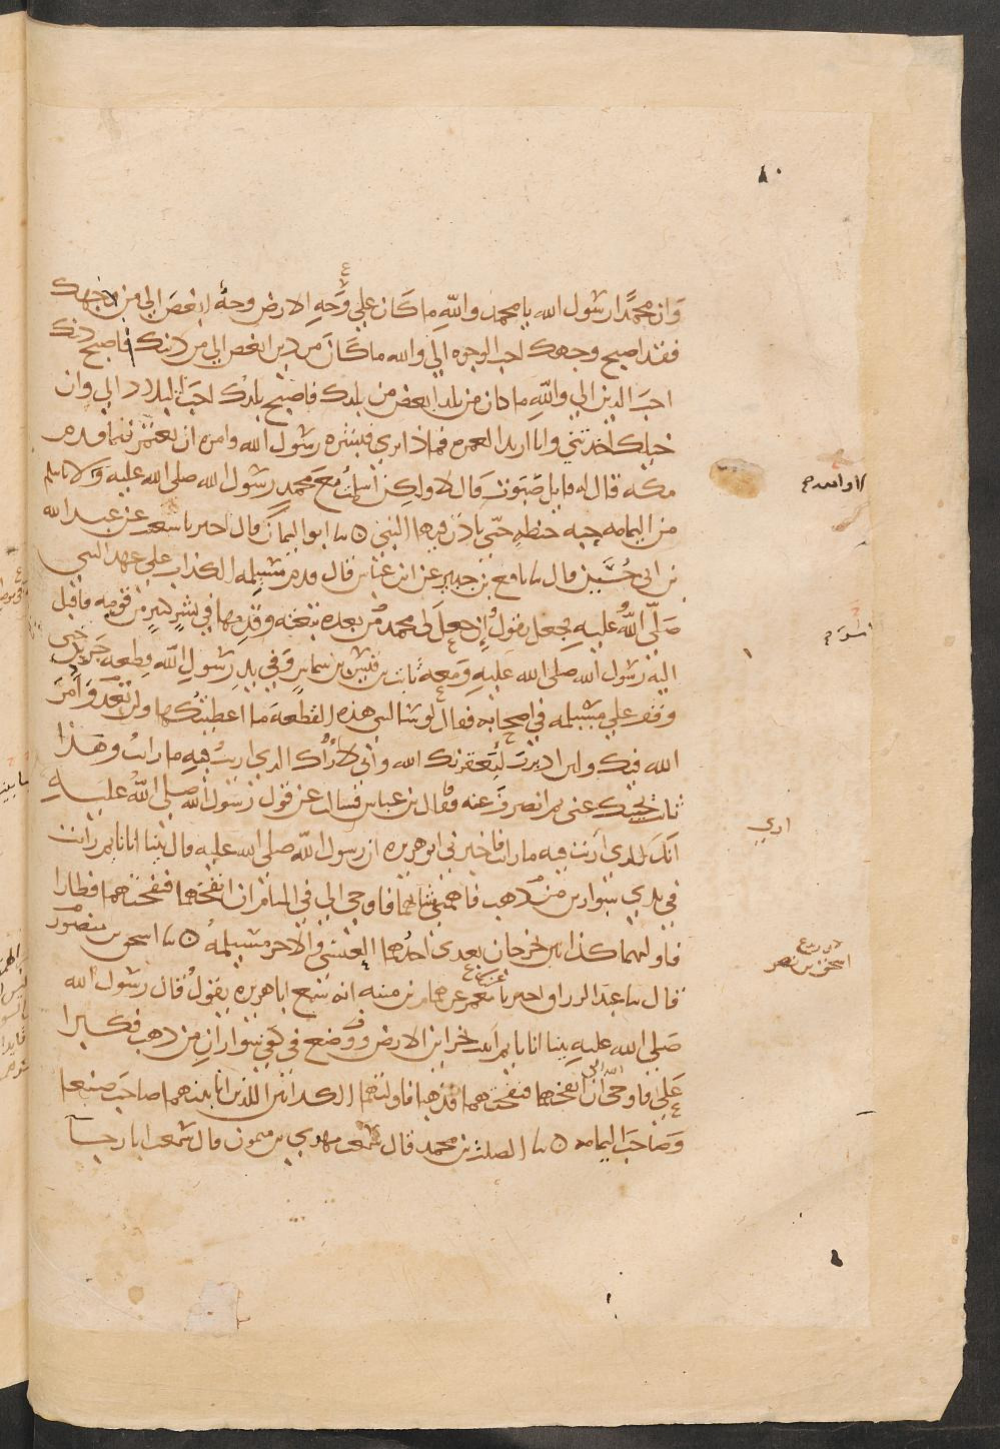 وان محمدا رسول الله يا محمد والله ما كان على وجه الارض وجه ابغض الي من وجهك
فقد اصبح وجهك احب الوجوه الي والله ما كان من دين ابغض الي من دينك فاصبح دينك
احب الدين الي والله ما كان من بلد ابغض من بلدك فاصبح بلدك احب البلاد الي وان
خيلك اخذتني وانا اريد العمرة فماذا ترى فبشره رسول الله وامره ان يعتمر فلما قدم
مكة قال له قايل صبوت قال لا ولكن اسلمت مع محمد رسول الله صلى الله عليه ولا والله لا ياتيكم
من اليمامة حبة حنطة حتى ياذن فيها النبي ٥ ثنا ابو اليمان قال اخبرنا شعيب عن عبد الله
بن ابي حسين قال ثنا نافع بن جبير عن ابن عباس قال قدم مسيلمة الكذاب على عهد النبي
صلى الله عليه فجعل يقول إن جعل لي محمد من بعده تبعته وقدمها في بشر كثير من قومه فاقبل
اليه رسول الله صلى الله عليه ومعه ثابت بن قيس بن شماس وفي يد رسول الله قطعة جريد حتى
وقف على مسيلمة في اصحابه فقال لو سالتني هذه القطعة ما اعطيتكها ولن تعدو امر
الله فيك ولين ادبرت ليعقرنك الله واني لاراك الذي اريت فيه ما رايت وهذا
ثابت يجيبك عني ثم انصرف عنه قال ابن عباس فسالت عن قول رسول الله صلى الله عليه
انك الذي اريت فيه ما رايت فاخبرني ابو هريرة ان رسول الله صلى الله عليه قال بينا انا نايم رايت
في يدي سوارين من ذهب فاهمني شانهما فاوحي الي في المنام ان انفخهما فنفختهما فطارا
فاولتهما كذابين يخرجان بعدي احدهما العنسي والاخر مسيلمة ٥ ثنا اسحق بن منصور
قال ثنا عبد الرزاق اخبرنا معمر عن همام بن منبه انه سمع ابا هريرة يقول قال رسول الله
صلى الله عليه بينا انا نايم اتيت بخزاين الارض فوضع في كفي سواران من ذهب فكبرا
علي فاوحى الله الي ان انفخهما فنفختهما فذهبا فاولتهما الكذابين اللذين انا بينهما صاحب صنعا
وصاحب اليمامة ٥ ثنا الصلت بن محمد قال سمعت مهدي بن ميمون قال سمعت ابا رجا
اري
اسحق بن نصر